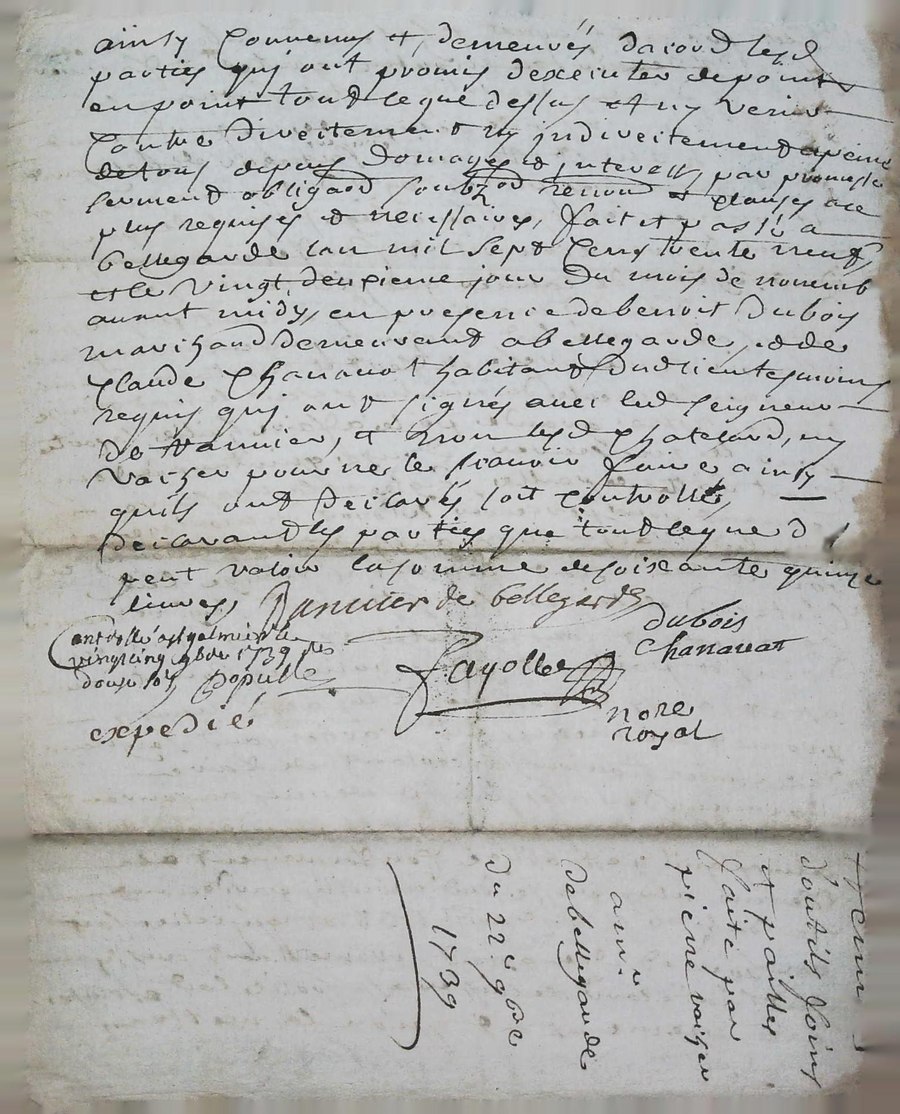 ainsy convenus et demeurés dacord lesd
parties qui ont promis dexecuter de point
en point tout le que dessus et ny venir
contre directement ny indirectement a peine
de tous depans domages et interests, par promesse
serment obligaon soubzon renon et clauses ace
plus requises et necessaires, fait et passé a
bellegarde lan mil sept cens trente neuf
et le vingt deuxieme jour du mois de novemb
avant midy, en presence de benoit dubois
marchand demeurant a bellegarde, et de
claude Chanavat habitant dud lieu tesmoins
requis qui ont signés avec led seigneur
de vannier, et non lesd chatelard, ny
vaisier pour ne le scavoir faire ainsy
quils ont declarés soit controllé,
declarant les parties que tout le que d
peut valoir la somme de soixante quinze
livres, vannier de bellegarde
dubois
Chanavat
controllé a st galmier le
vingt cinq 9bre 1739
douze sols
fayolle
nore
royal
expedié
doutils foins
et pailles
faite par
pierre vaisier
a mr
de bellegarde
du 22e 9bre
1739